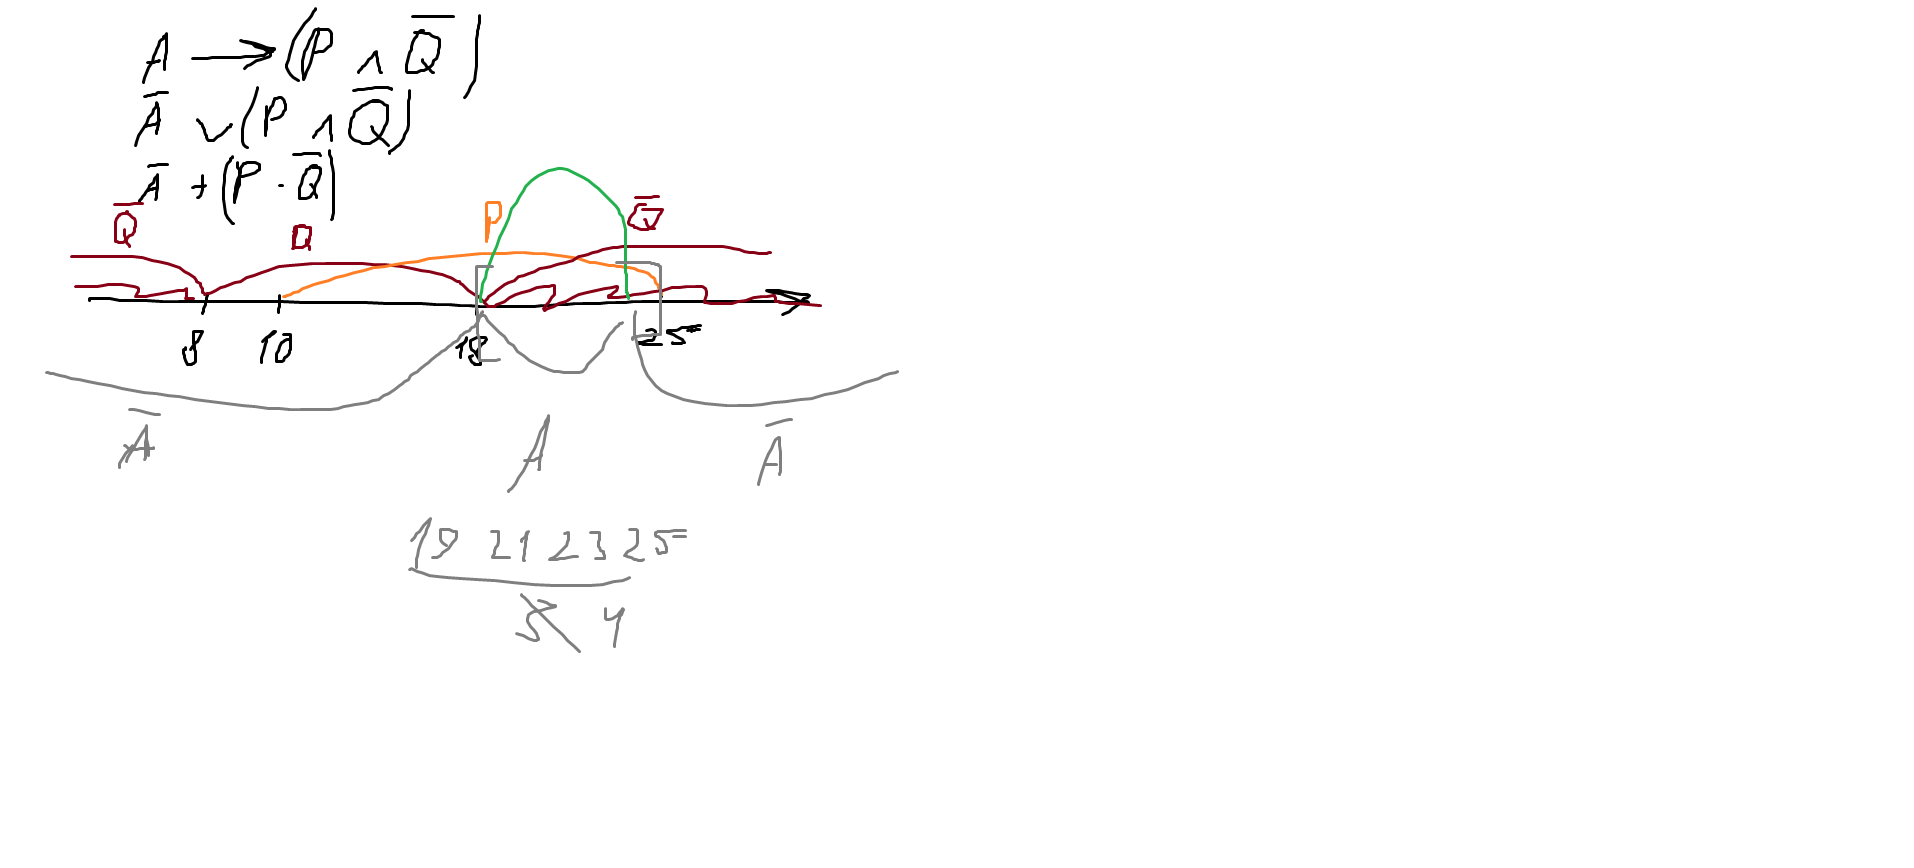 A → (P ∧ Q̅)
A̅ ∨ (P ∧ Q̅)
A̅ + (P · Q̅)
Q̅ Q P Q̅
8 10 18 25
A̅ A A̅
19 21 23 25
5 4